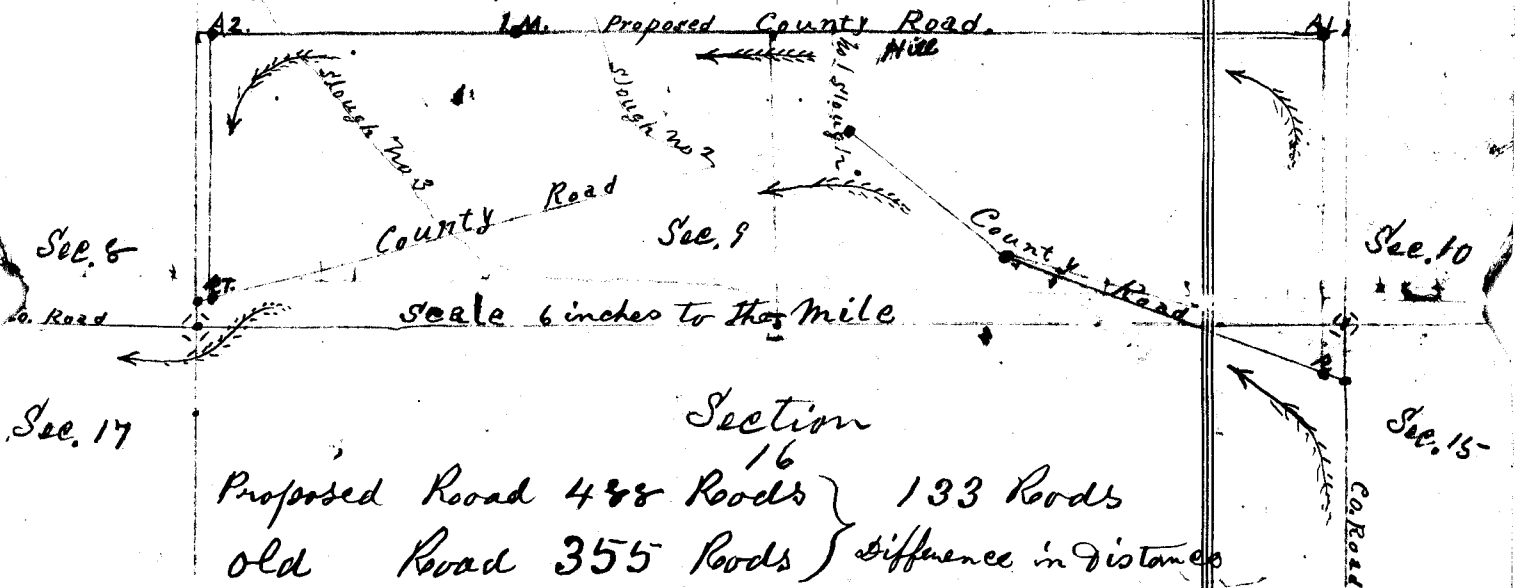 A2. 1.M. Proposed County Road. A1.
Hill
No 1 Slough.
Slough No 2
Slough No 3
County Road
Sec. 8
Sec. 9
County Road
Sec. 10
P.T.
Co. Road
Scale 6 inches to the Mile
Sec. 17
Section
16
Sec. 15
Co. Road
Proposed Rooad 488 Roods } 133 Roods
old Rooad 355 Rods } Difference in Distance